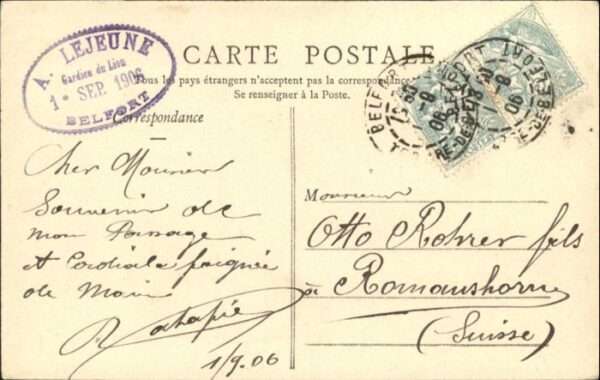 A. LEJEUNE
Gardien du Lion
1 - SEP. 1906
BELFORT
CARTE POSTALE
Tous les pays étrangers n'acceptent pas la correspondance
Se renseigner à la Poste.
Correspondance
Cher Monsieur
Souvenir de
mon Passage
et Cordiale poignée
de Main
1/9.06
Monsieur
Otto Rohrer fils
à Romanshorn
(Suisse)
BELFORT